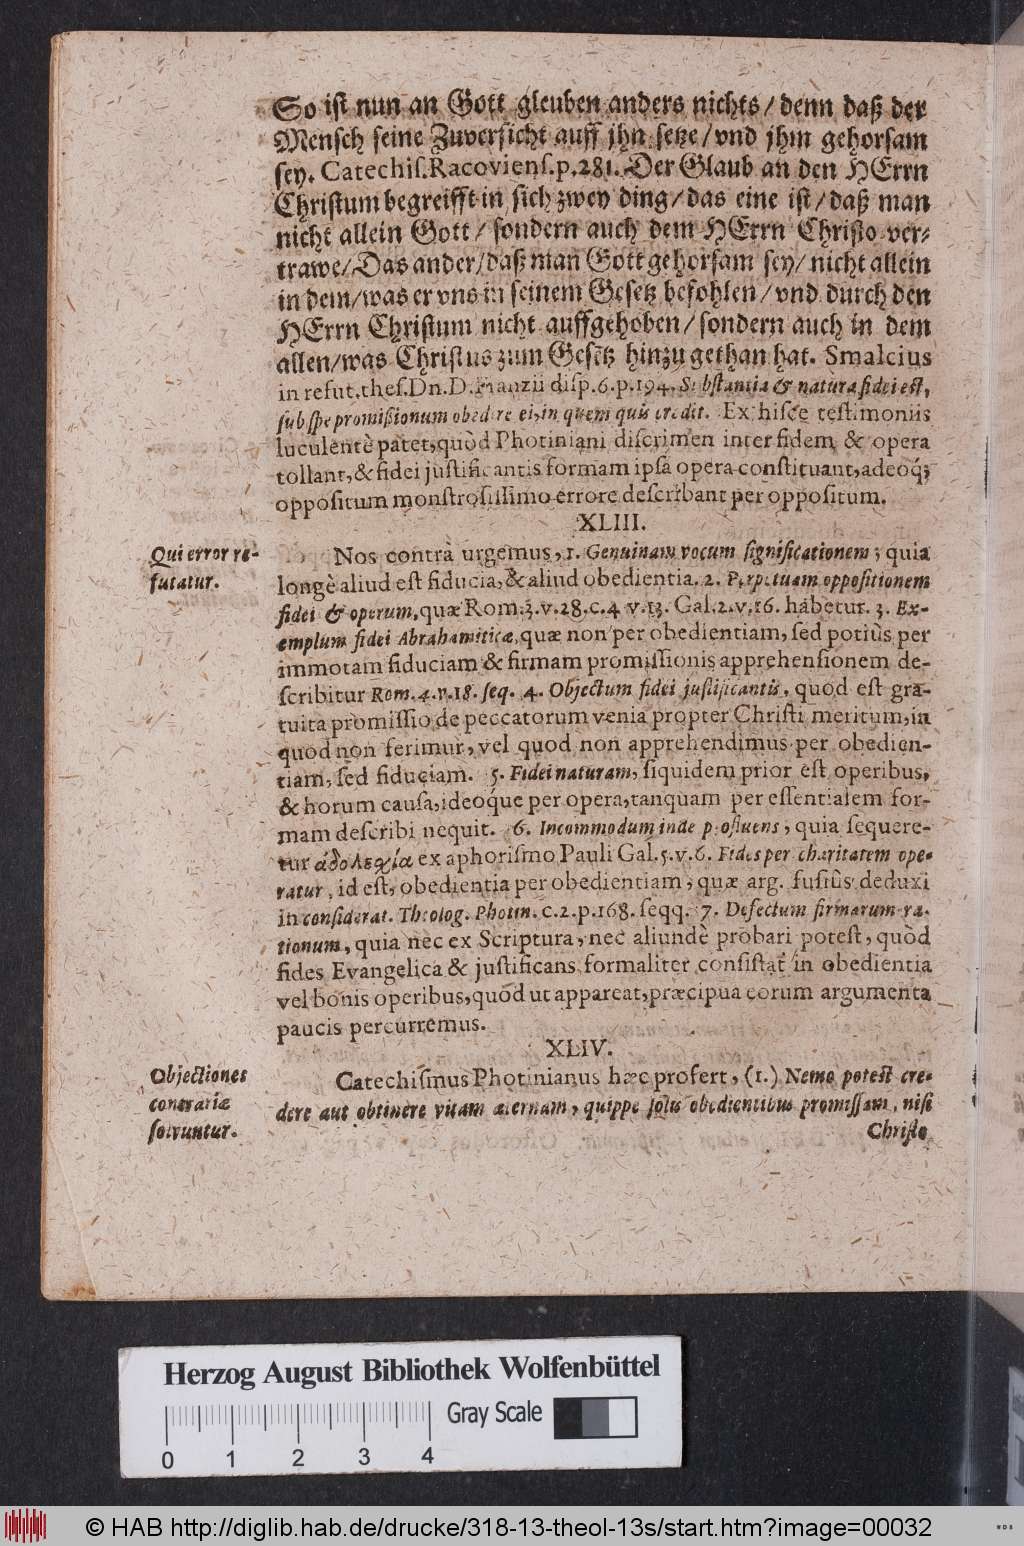 So ist nun an Gott gleuben anders nichts / denn daß der
Mensch seine Zuversicht auff jhn setze / vnd jhm gehorsam
sey. Catechiſ. Racovienſ. p. 281. Der Glaub an den HErrn
Christum begreifft in sich zwey ding / das eine ist / daß man
nicht allein Gott / sondern auch dem HErrn Christo ver-
trawe / Das ander / daß man Gott gehorsam sey / nicht allein
in dem / was er vns in seinem Gesetz befohlen / vnd durch den
HErrn Christum nicht auffgehoben / sondern auch in dem
allen / was Christus zum Gesetz hinzu gethan hat. Smalcius
in refut. theſ. Dn. D. Franzii diſp. 6. p. 194. Subſtantia & natura fidei eſt,
ſub ſpe promiſsionum obedire ei, in quem quis credit. Ex hiſce teſtimoniis
luculentè patet, quòd Photiniani diſcrimen inter fidem & opera
tollant, & fidei juſtificantis formam ipſa opera conſtituant, adeoq́;
oppoſitum monſtroſiſſimo errore deſcribant per oppoſitum.
XLIII.
Qui error re-
futatur.
Nos contrà urgemus, 1. Genuinam vocum ſignificationem; quia
longè aliud eſt fiducia, & aliud obedientia. 2. Perpetuam oppoſitionem
fidei & operum, quæ Rom. 3. v. 28. c. 4 v. 13. Gal. 2. v. 16. habetur. 3. Ex-
emplum fidei Abrahamiticæ, quæ non per obedientiam, ſed potiùs per
immotam fiduciam & firmam promiſſionis apprehenſionem de-
ſcribitur Rom. 4. v. 18. ſeq. 4. Objectum fidei juſtificantis, quod eſt gra-
tuita promiſſio de peccatorum venia propter Chriſti meritum, in
quod non ferimur, vel quod non apprehendimus per obedien-
tiam, ſed fiduciam. 5. Fidei naturam, ſiquidem prior eſt operibus,
& horum cauſa, ideóque per opera, tanquam per eſſentialem for-
mam deſcribi nequit. 6. Incommodum inde profluens, quia ſequere-
tur ἀδολεσχία ex aphoriſmo Pauli Gal. 5. v. 6. Fides per charitatem ope-
ratur, id eſt, obedientia per obedientiam, quæ arg. fuſiùs deduxi
in conſiderat. Theolog. Photin. c. 2. p. 168. ſeqq. 7. Defectum firmarum ra-
tionum, quia nec ex Scriptura, nec aliundè probari poteſt, quòd
fides Evangelica & juſtificans formaliter conſiſtat in obedientia
vel bonis operibus, quod ut appareat, præcipua eorum argumenta
paucis percurremus.
XLIV.
Objectiones
contrariæ
ſolvuntur.
Catechiſmus Photinianus hæc profert, (1.) Nemo poteſt cre-
dere aut obtinere vitam æternam, quippe ſolis obedientibus promiſſam, niſi
Chriſto
Herzog August Bibliothek Wolfenbüttel
Gray Scale
0 1 2 3 4
© HAB http://diglib.hab.de/drucke/318-13-theol-13s/start.htm?image=00032